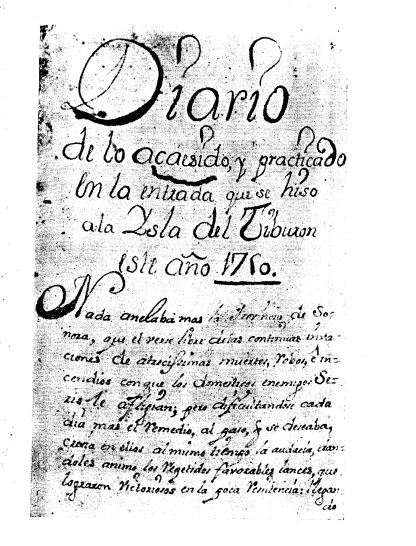 Diario
de lo acaesido, y practicado
En la entrada que se hiso
a la Ysla del Tiburon
este año 1750.
Nada anelaba mas la Provincia de So-
nora, que el verse libre de las continuas
ciones de atrocissimas muertes, robos, è in-
cendios con que los domesticos enemigos Se-
ris le afligian; pero dificultandose cada
dia mas el remedio, al paso, q se deseaba,
crecia en ellos al mismo tiempo la audacia, dan-
doles animo los repetidos favorables lances, que
lograron victoriosos en la poca resistencia: llegan-
do